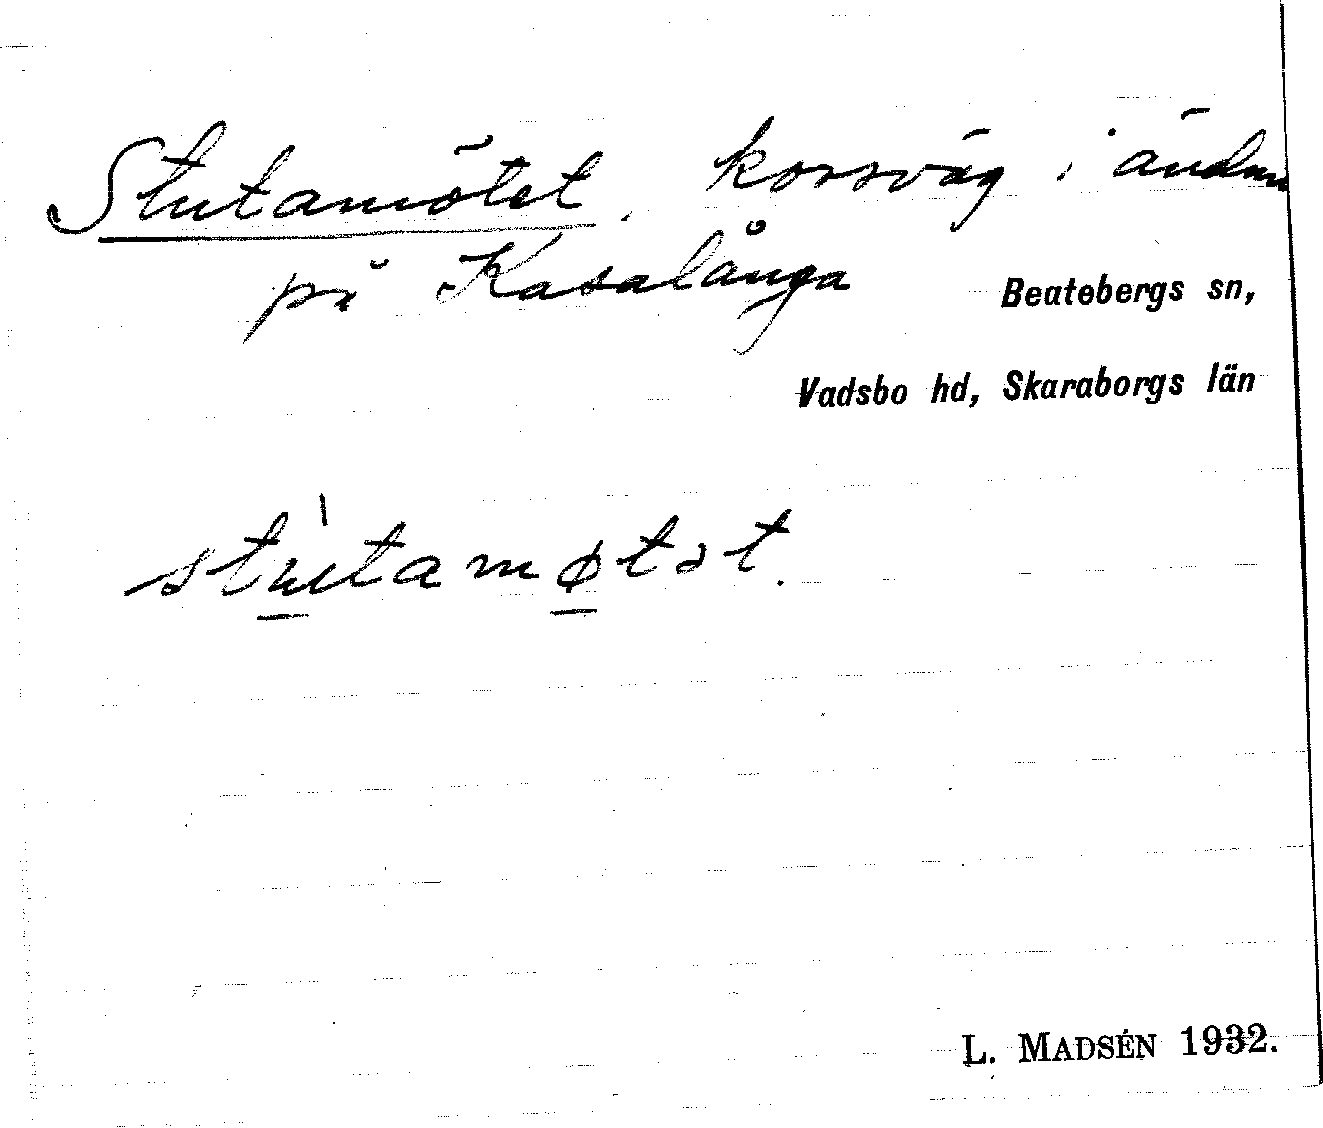 Stutamötet, korsväg i ändan
på Kasalånga
Beatebergs sn,
Vadsbo hd, Skaraborgs län
stù̲tamø̲tət.
L. MADSÉN 1932.